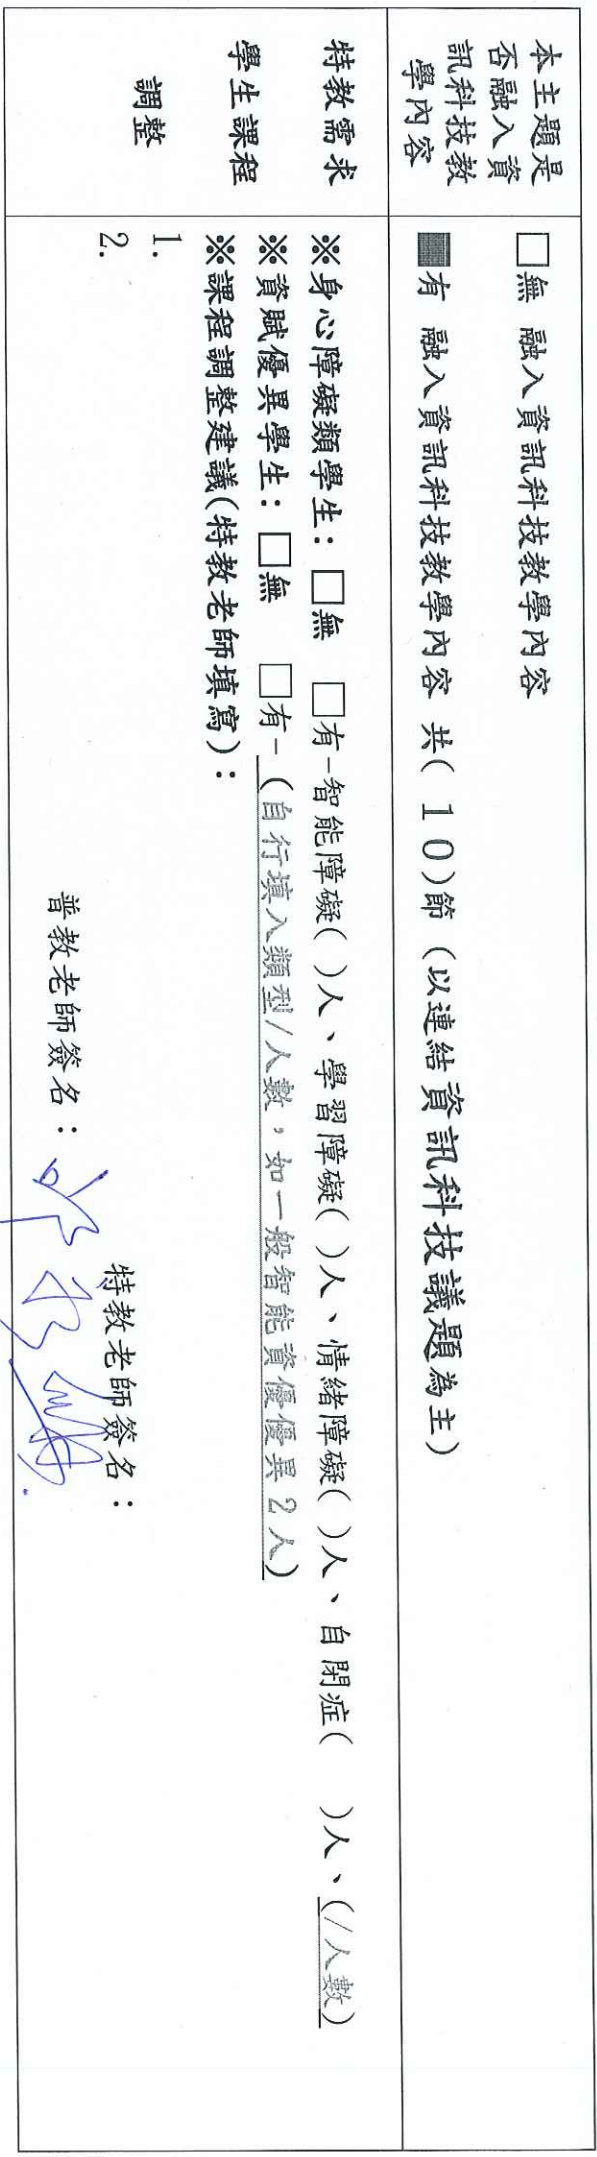 本主題是
否融入資
訊科技教
學內容
□無 融入資訊科技教學內容
■有 融入資訊科技教學內容 共(10)節 (以連結資訊科技議題為主)
特教需求
學生課程
調整
※身心障礙類學生：□無 □有-智能障礙( )人、學習障礙( )人、情緒障礙( )人、自閉症( )人、(/人數)
※資賦優異學生：□無 □有-(自行填入類型/人數，如一般智能資優優異2人)
※課程調整建議(特教老師填寫)：
1.
2.
特教老師簽名：
普教老師簽名：